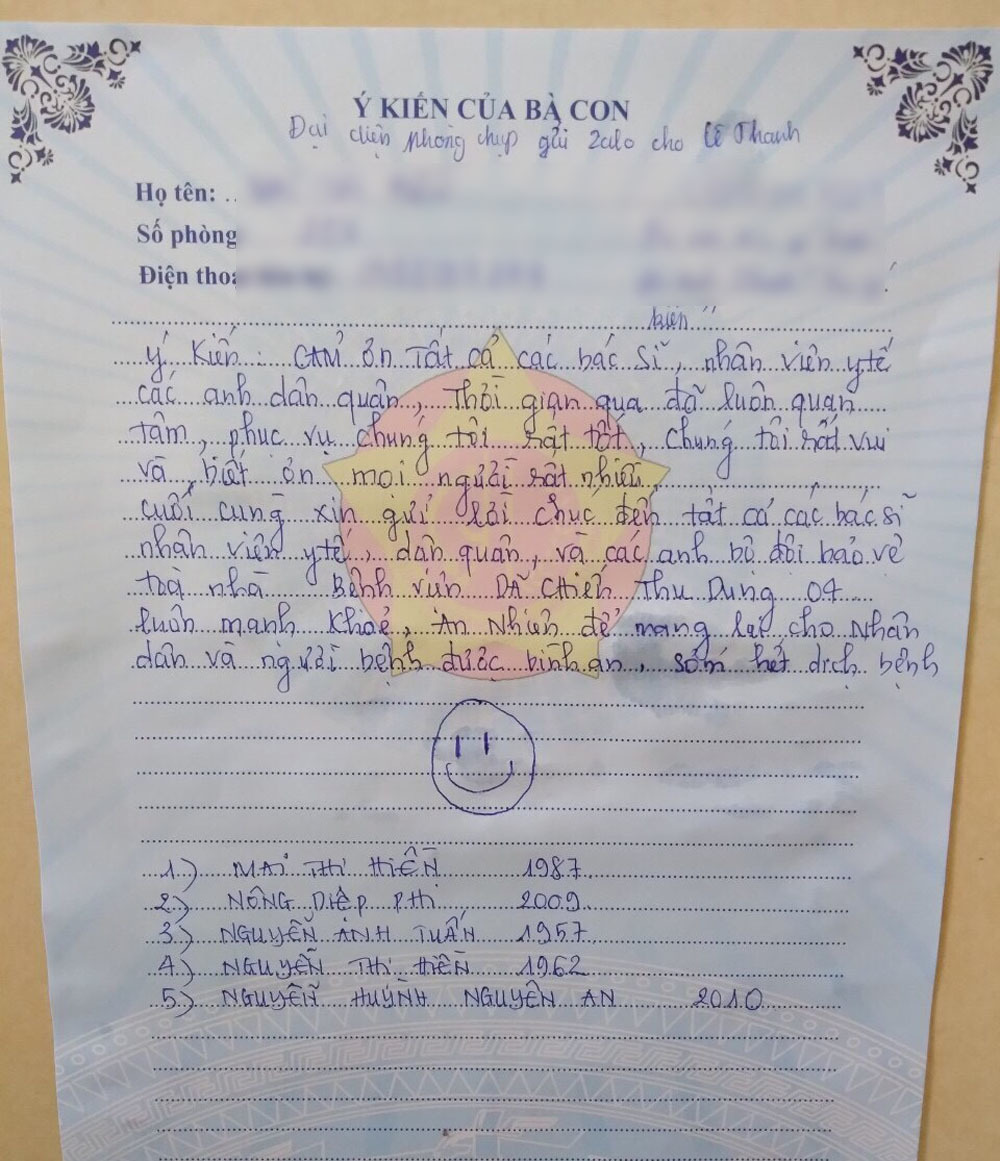 Ý KIẾN CỦA BÀ CON
Đại diện phòng chụp gửi Zalo cho Lê Thanh
Họ tên: ..
Số phòng
Điện thoạ
kiến
Ý Kiến : CẢM ơn Tất cả các bác sĩ, nhân viên y tế
các anh dân quân, Thời gian qua đã luôn quan
tâm, phục vụ chúng tôi rất tốt, chúng tôi rất vui
và biết ơn mọi người rất nhiều,
cuối cùng xin gửi lời chúc đến tất cả các bác sĩ
nhân viên y tế, dân quân, và các anh bộ đội bảo vệ
toà nhà Bệnh viện DÃ CHIẾN Thu Dung 04
luôn mạnh Khoẻ, An Nhiên để mang lại cho Nhân
dân và người bệnh được bình an, sớm hết dịch bệnh
1.) MAI THỊ HIỀN 1987
2.) NÔNG DIỆP PHI 2009
3.) NGUYỄN ANH TUẤN 1957
4.) NGUYỄN THỊ HIỀN 1962
5.) NGUYỄN HUỲNH NGUYÊN AN 2010